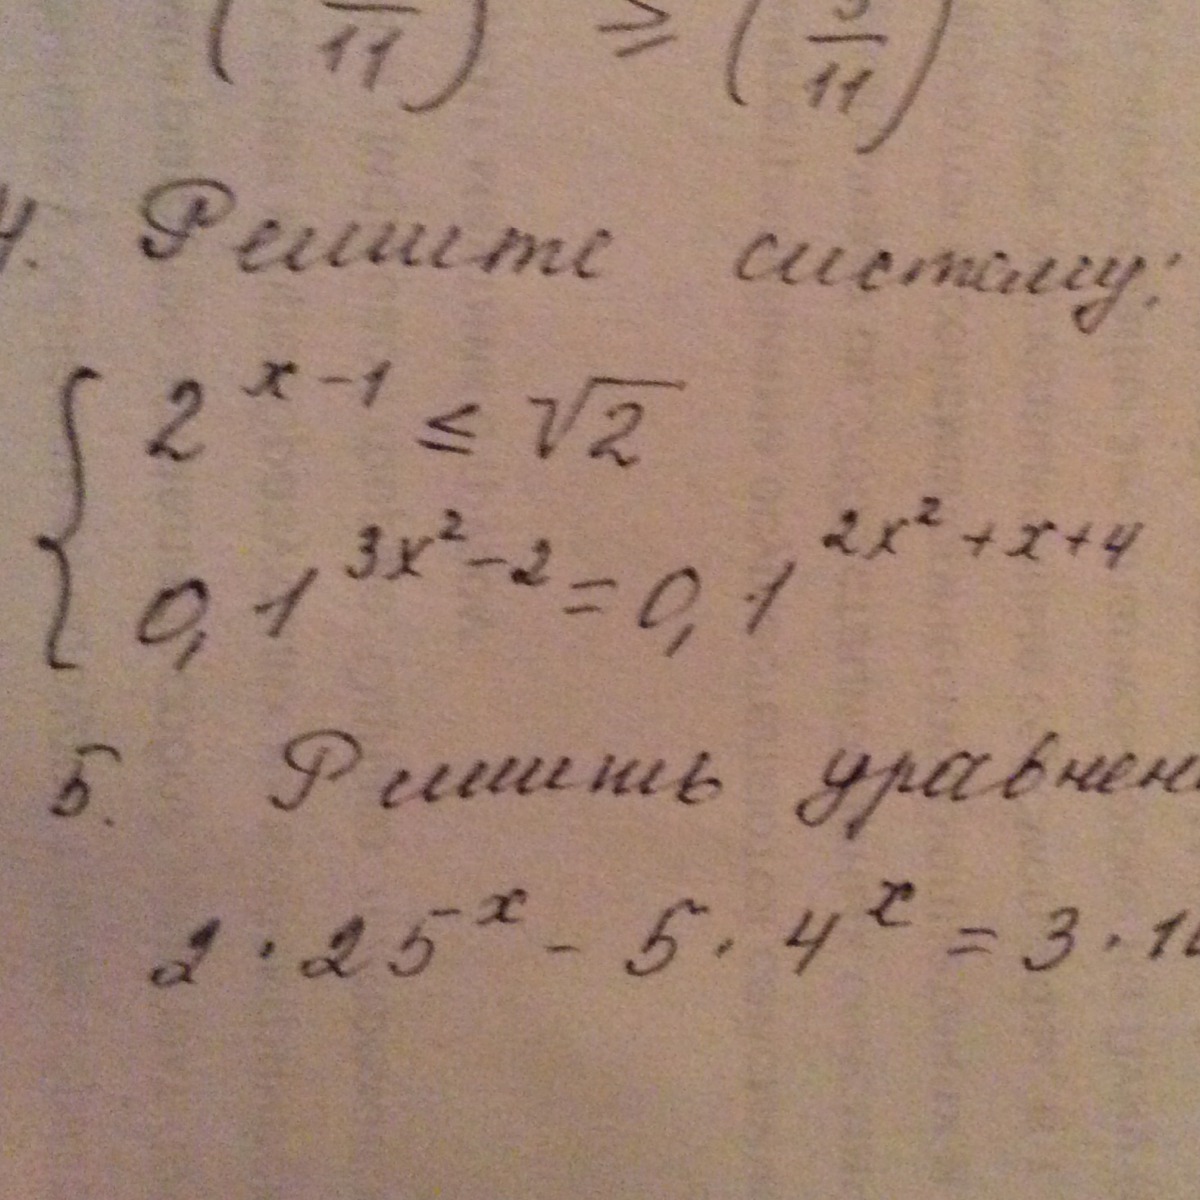 ( /11) ≥ ( /11)
4. Решите систему:
{ 2^(x-1) ≤ √2
0,1^(3x²-2) = 0,1^(2x²+x+4)
5. Решить
2·25^x - 5·4^x = 3·